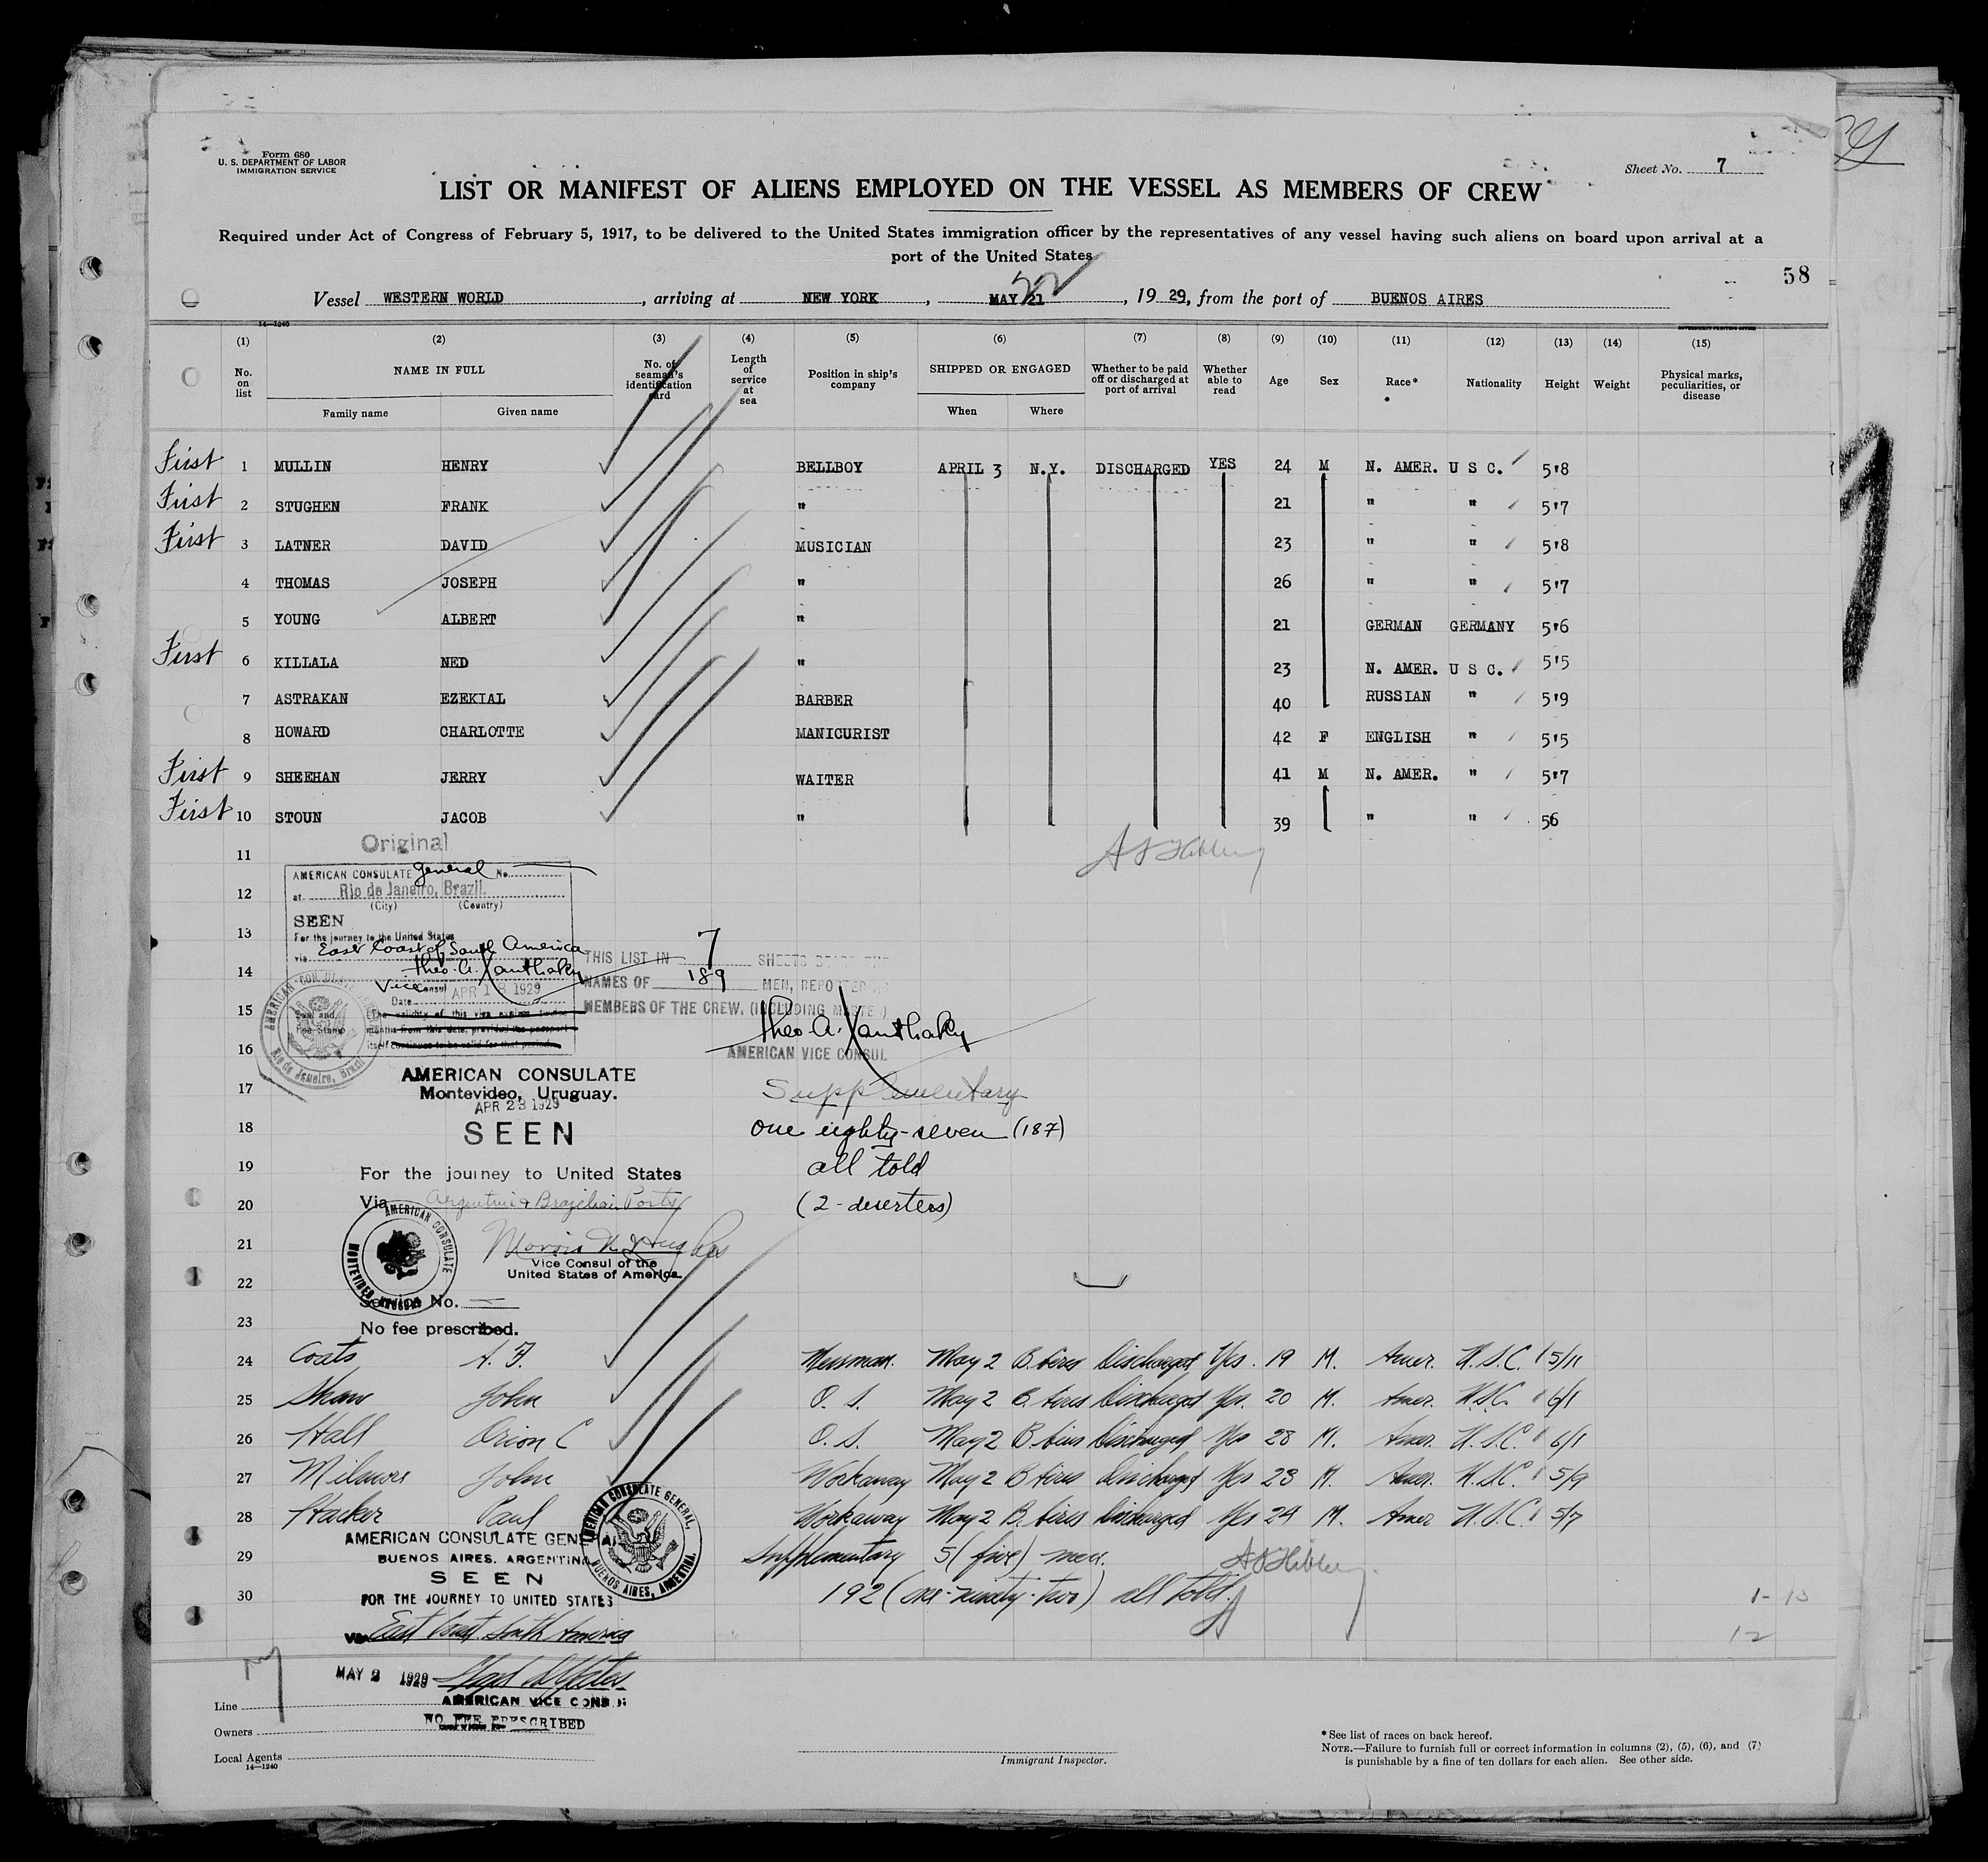 Form 680
U. S. DEPARTMENT OF LABOR
IMMIGRATION SERVICE
Sheet No. 7
LIST OR MANIFEST OF ALIENS EMPLOYED ON THE VESSEL AS MEMBERS OF CREW
Required under Act of Congress of February 5, 1917, to be delivered to the United States immigration officer by the representatives of any vessel having such aliens on board upon arrival at a
port of the United States
58
Vessel WESTERN WORLD, arriving at NEW YORK, MAY 21 22, 1929, from the port of BUENOS AIRES
14—1240
(1) (2) (3) (4) (5) (6) (7) (8) (9) (10) (11) (12) (13) (14) (15)
No. on list NAME IN FULL No. of seaman's identification card Length of service at sea Position in ship's company SHIPPED OR ENGAGED Whether to be paid off or discharged at port of arrival Whether able to read Age Sex Race* Nationality Height Weight Physical marks, peculiarities, or disease
Family name Given name When Where
First 1 MULLIN HENRY BELLBOY APRIL 3 N.Y. DISCHARGED YES 24 M N. AMER. U S C. 5'8
First 2 STUGHEN FRANK " 21 " " 5'7
First 3 LATNER DAVID MUSICIAN 23 " " 5'8
4 THOMAS JOSEPH " 26 " " 5'7
5 YOUNG ALBERT " 21 GERMAN GERMANY 5'6
First 6 KILLALA NED " 23 N. AMER. U S C. 5'5
7 ASTRAKAN EZEKIAL BARBER 40 RUSSIAN " 5'9
8 HOWARD CHARLOTTE MANICURIST 42 F ENGLISH " 5'5
First 9 SHEEHAN JERRY WAITER 41 M N. AMER. " 5'7
First 10 STOUN JACOB " 39 " " 56
Original
11
AMERICAN CONSULATE General No.
12
at Rio de Janeiro, Brazil.
(City) (Country)
SEEN
13
For the journey to the United States
via East Coast of South America
14
Theo. A. Xanthaky
Vice Consul
Date APR 18 1929
15
(The validity of this visa expires twelve
months from this date, provided the passport
itself continues to be valid for that period.
16
AMERICAN CONSULATE
Rio de Janeiro, Brazil
THIS LIST IN 7 SHEETS
NAMES OF 189 MEN, REPORTED
MEMBERS OF THE CREW, (INCLUDING MASTER)
Theo. A. Xanthaky
AMERICAN VICE CONSUL
AMERICAN CONSULATE
17
Montevideo, Uruguay.
APR 23 1929
18
SEEN
19
For the journey to United States
20
Via Argentine & Brazilian Ports
21
Vice Consul of the
United States of America.
22
AMERICAN CONSULATE
MONTEVIDEO
Service No.
23
No fee prescribed.
Supplementary
one eighty-seven (187)
all told
(2 - deserters)
24 Coats A. F. Messman. May 2 B. Aires Discharged Yes. 19 M. Amer. U.S.C. 5/11
25 Shaw John O. S. May 2 B. Aires Discharged Yes. 20 M. Amer. U.S.C. 6/1
26 Hall Orion C O. S. May 2 B Aires Discharged Yes 28 M. Amer. U.S.C. 6/1
27 John Workaway May 2 B Aires Discharged Yes 23 M. Amer. U.S.C. 5/9
28 Hacker Paul Workaway May 2 B. Aires Discharged Yes 24 M. Amer U.S.C. 5/7
29 Supplementary 5 (five) men.
30 192 (one-ninety-two) all told.
AMERICAN CONSULATE GENERAL
BUENOS AIRES, ARGENTINA
SEEN
FOR THE JOURNEY TO UNITED STATES
via East Coast South America
MAY 2 1929
AMERICAN VICE CONSUL
NO FEE PRESCRIBED
AMERICAN CONSULATE GENERAL,
BUENOS AIRES, ARGENTINA.
1- 13
12
Line
Owners
Local Agents
14—1240
Immigrant Inspector.
* See list of races on back hereof.
NOTE.—Failure to furnish full or correct information in columns (2), (5), (6), and (7)
is punishable by a fine of ten dollars for each alien. See other side.